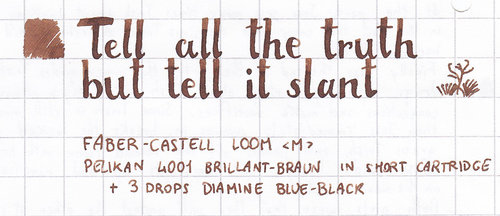 Tell all the truth
but tell it slant
FABER-CASTELL LOOM <M>
PELIKAN 4001 BRILLANT-BRAUN IN SHORT CARTRIDGE
+ 3 DROPS DIAMINE BLUE-BLACK